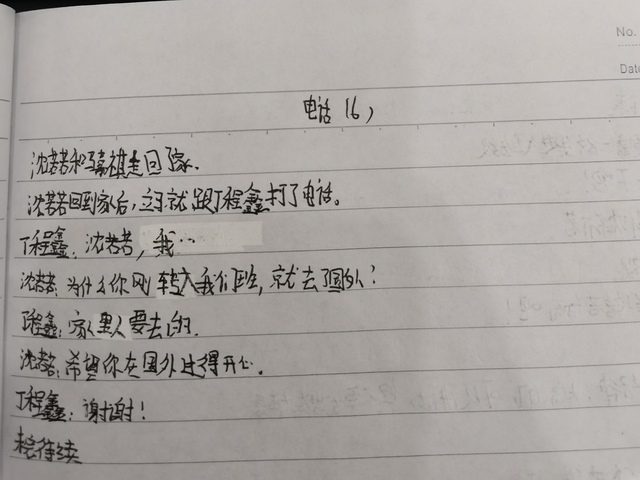 No.
Date
电话(6)
沈若若和马嘉祺走回家.
沈若若回到家后,立马就跟丁程鑫打了电话。
丁程鑫:沈若若,我…
沈若若:为什么你刚转入我们班,就去国外?
丁程鑫:家里人要去的.
沈若若:希望你在国外过得开心.
丁程鑫:谢谢!
未完待续